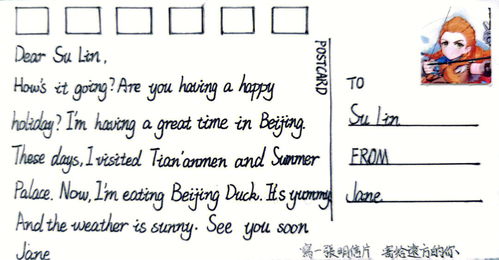 Dear Su Lin,
How's it going? Are you having a happy
holiday? I'm having a great time in Beijing.
These days, I visited Tian'anmen and Summer
Palace. Now, I'm eating Beijing Duck. It's yummy
And the weather is sunny. See you soon
Jane
POSTCARD
TO
Su Lin
FROM
Jane
寫一張明信片 寄給遠方的你、